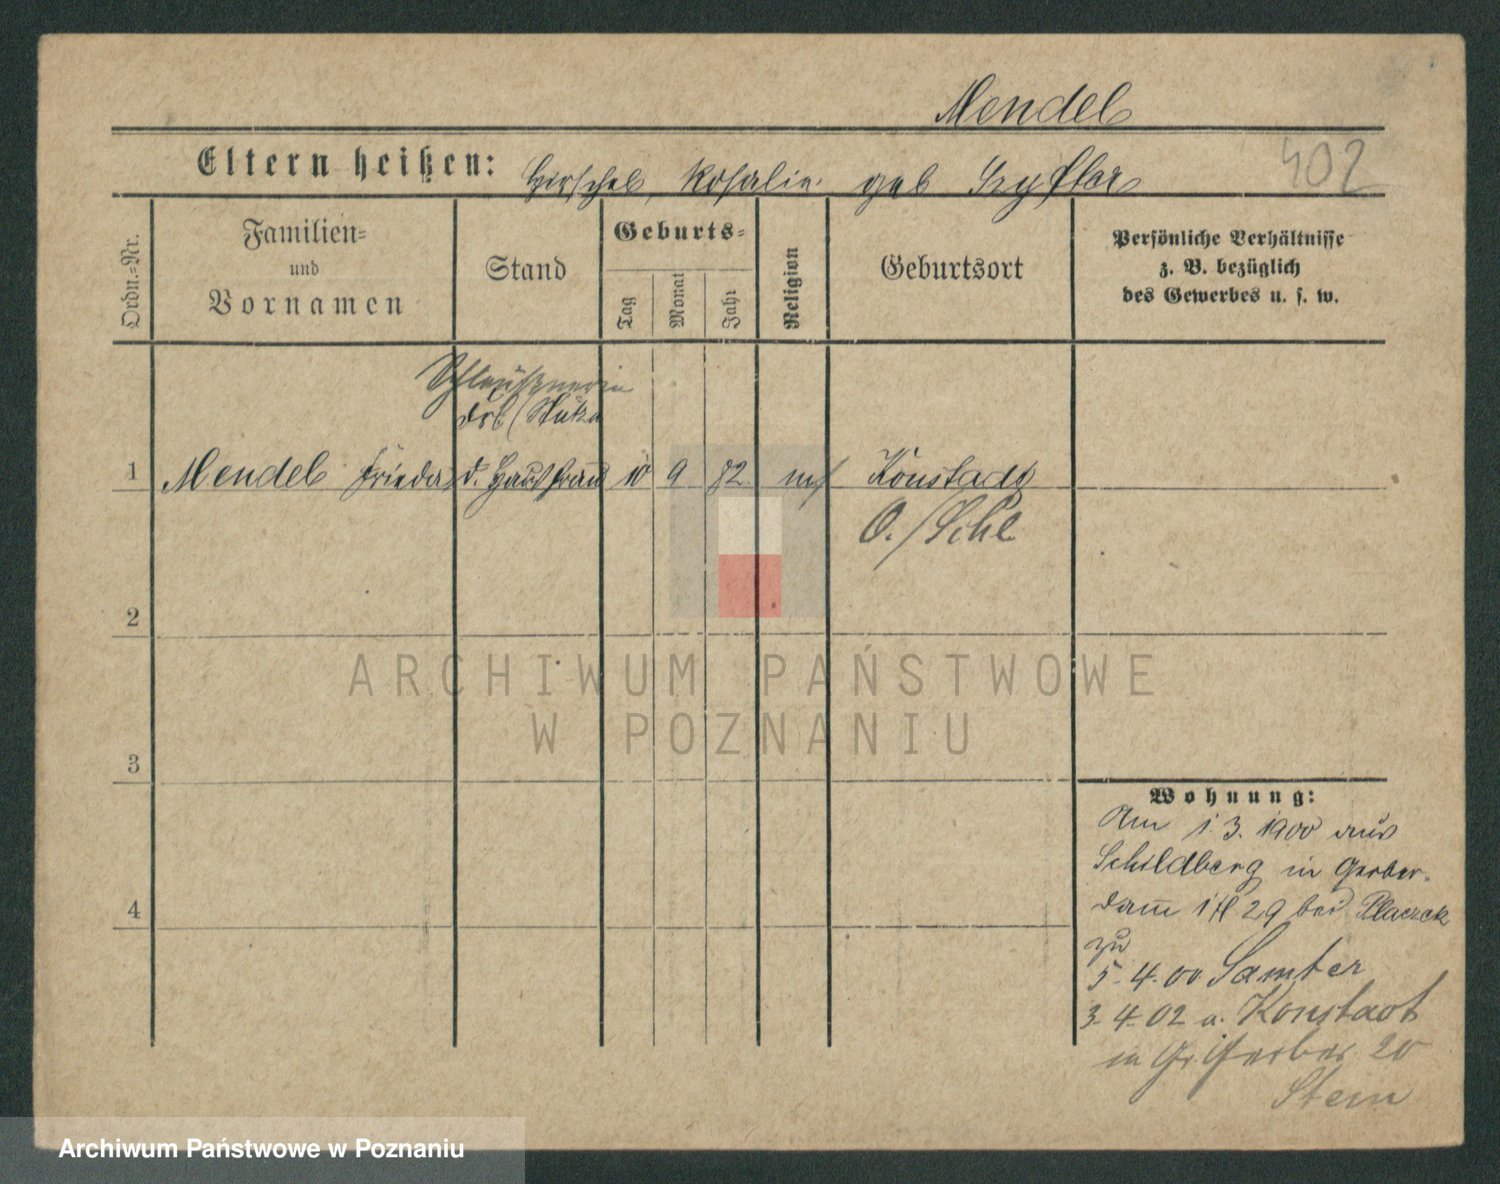 Mendel
402
Eltern heißen: Hirschel, Rosalie geb
Ordn.-Nr.
Familien-
und
Vornamen
Stand
Geburts-
Tag
Monat
Jahr
Religion
Geburtsort
Persönliche Verhältnisse
z. B. bezüglich
des Gewerbes u. s. w.
1 Mendel Frieda d. Hausfrau 10 9 82 Konstadt
O./Schl.
2
3
4
Wohnung:
Am 1. 3. 1900 aus
Schildberg in Gerber-
damm 29 bei Placzek
zu
5. 4. 00 Samter
3. 4. 02 a. Konstadt
in Gr. Gerber 20
Stein
ARCHIWUM PAŃSTWOWE
W POZNANIU
Archiwum Państwowe w Poznaniu